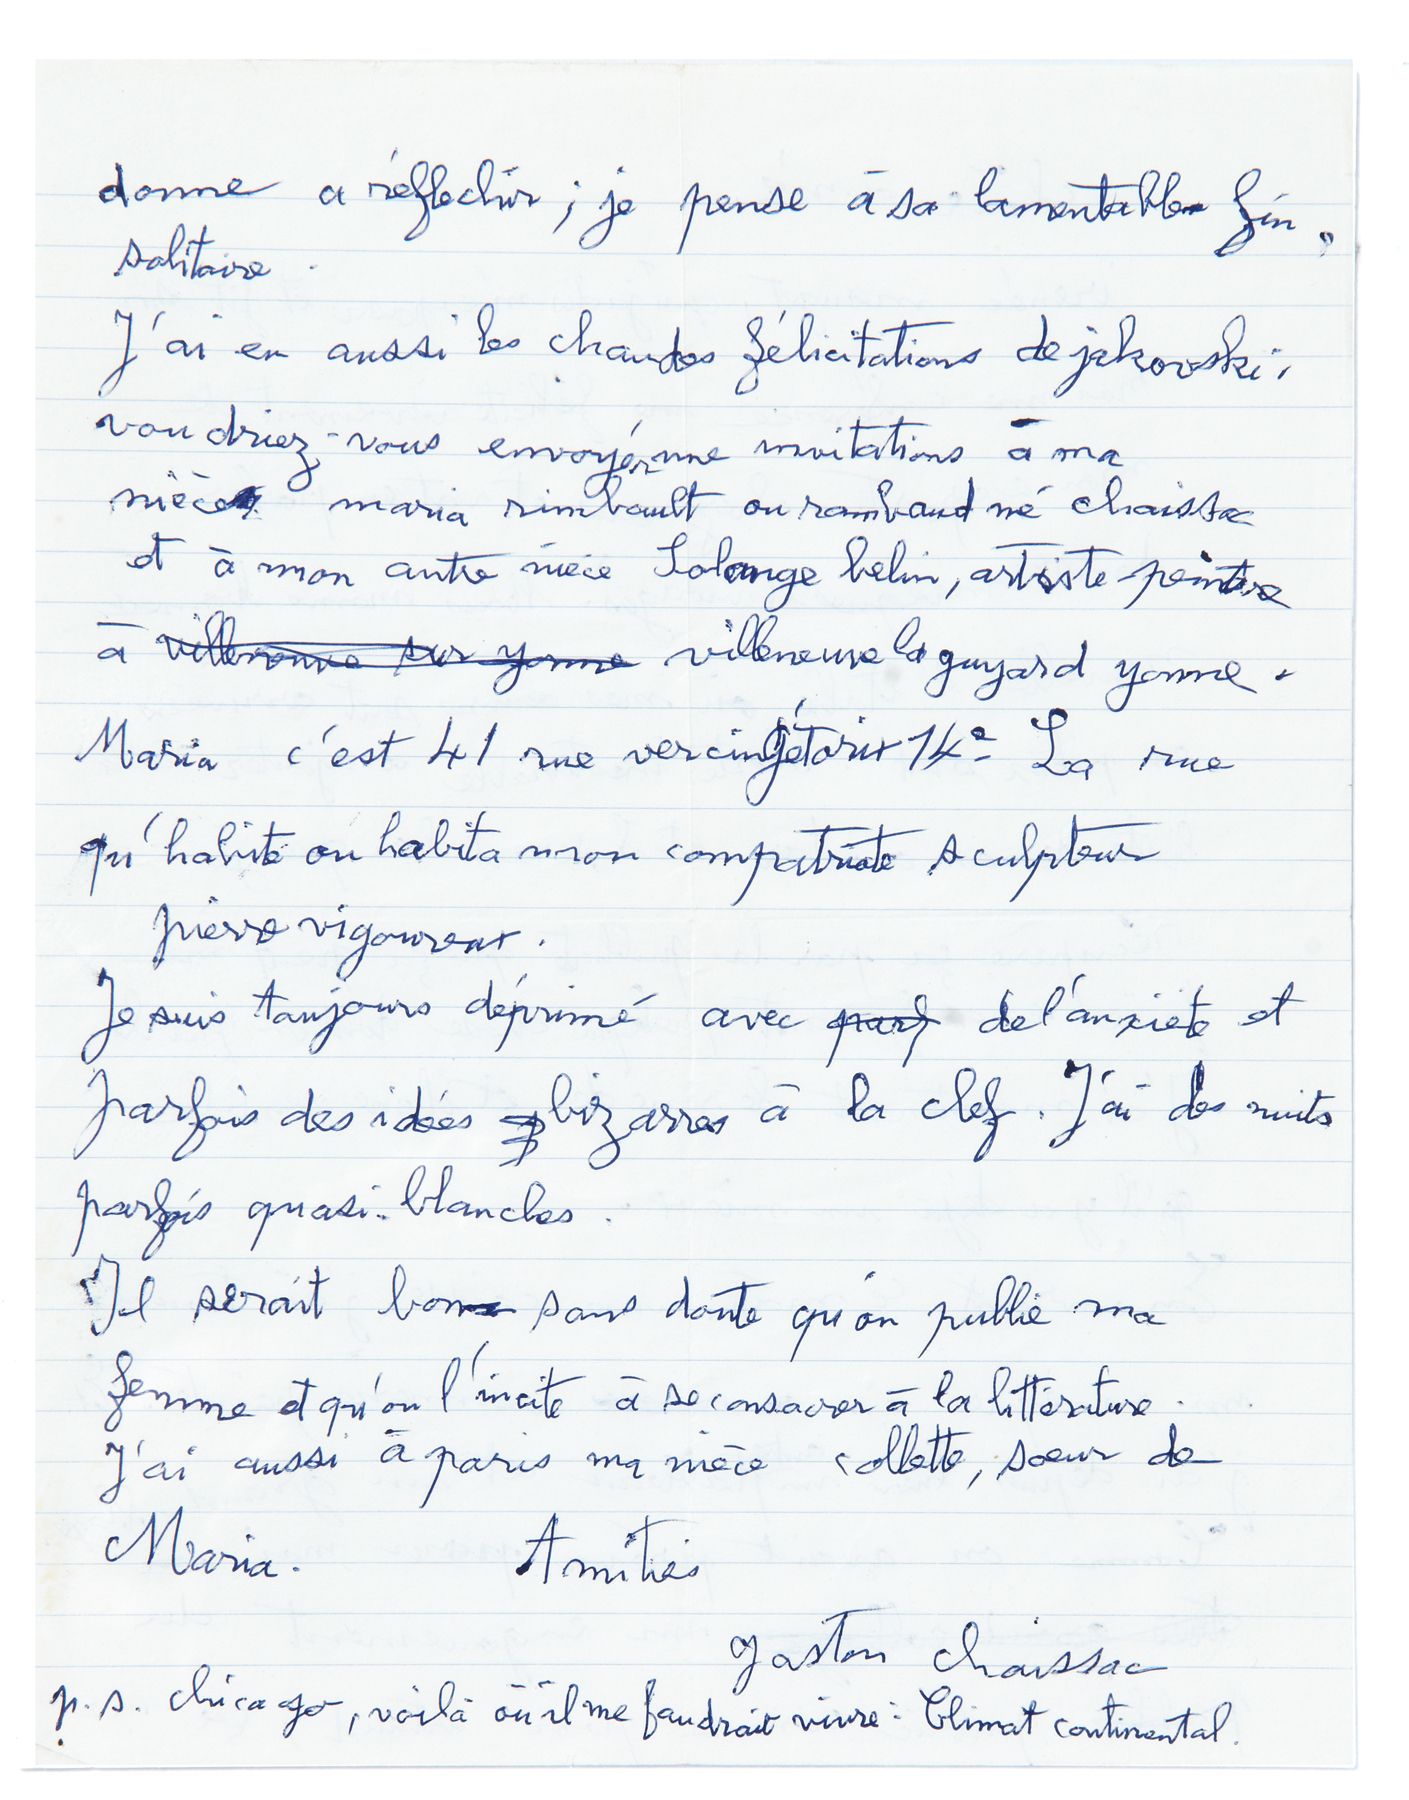 donne a réflechir ; je pense à sa lamentable fin,
solitaire.
J'ai eu aussi les chaudes félicitations de jakovski,
voudriez-vous envoyér une invitations à ma
nièce maria rimbault ou rambaud né chaissac
et à mon autre nièce Solange belin, artiste-peintre
à villeneuve sur yonne villeneuve la guyard yonne.
Maria c'est 41 rue vercingétorix 14e La rue
qu'habite ou habita mon compatriote sculpteur
pierre vigoureux.
Je suis toujours déprimé avec parf de l'anxiete et
parfois des idées bizarres à la clef. J'ai des nuits
parfois quasi-blanches.
Il serait bon sans doute qu'on publie ma
femme et qu'on l'incite à se consacrer à la littérature.
J'ai aussi à paris ma nièce collette, soeur de
Maria. Amitiés
gaston chaissac
p.s. chicago, voilà où il me faudrait vivre : Climat continental.